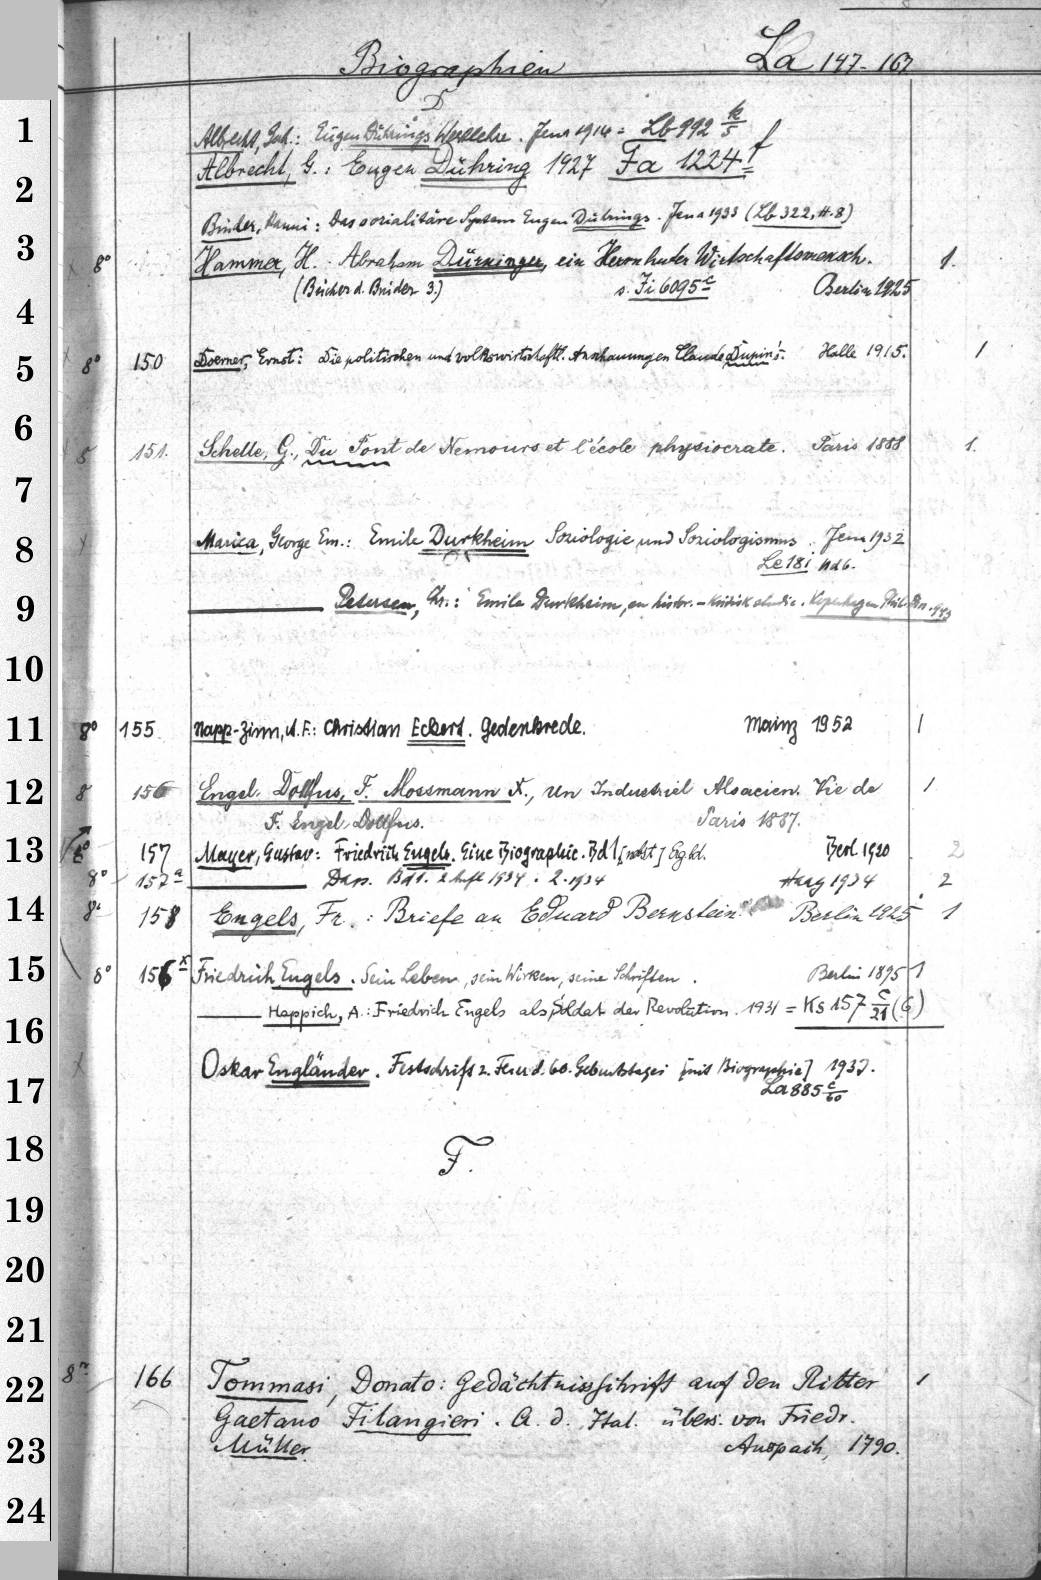 Biographien La 147-167
D
1 Albrecht, Gerh.: Eugen Dührings Wertlehre. Jena 1914 = Lb 992 k/5
2 Albrecht, G.: Eugen Dühring 1927 Fa 1224 f
Binder, Hanni: Das sozialitäre System Eugen Dührings. Jena 1933 (Lb 322, H. 8)
3 8° Hammer, H. Abraham Dürninger, ein Herrnhuter Wirtschaftsmensch. 1.
(Bücher d. Brüder 3.) s. Fi 6095 c Berlin 1925
4
5 8° 150 Doerner, Ernst: Die politischen und volkswirtschaftl. Anschauungen Claude Dupin's. Halle 1915. 1
6 8 151. Schelle, G., Du Pont de Nemours et l'école physiocrate. Paris 1888 1.
7
8 Marica, George Em.: Emile Durkheim Soziologie und Soziologismus. Jena 1932
Le 181 Nd 6.
9 Petersen, Chr.: Emile Durkheim, en histor.-kritisk studie. Kopenhagen Phil. Diss. 943
10
11 8° 155 Napp-Zinn, A. F.: Christian Eckert. Gedenkrede. Mainz 1952 1
12 8 156 Engel-Dollfus, F. Mossmann X., Un Industriel Alsacien. Vie de 1
F. Engel-Dollfus. Paris 1887.
13 8° 157 Mayer, Gustav: Friedrich Engels. Eine Biographie. Bd 1 [nebst] Ergbd. Berl. 1920 2
8° 157a Dass. Bd 1. 2. Aufl. 1934. 2. 1934 Haag 1934 2
14 8° 158 Engels, Fr.: Briefe an Eduard Bernstein. Berlin 1925 1
15 8° 156 x Friedrich Engels. Sein Leben, sein Wirken, seine Schriften. Berlin 1895 1
16 Happich, A.: Friedrich Engels als Soldat der Revolution. 1931 = Ks 157 c/21 (6)
17 Oskar Engländer. Festschrift z. Feier d. 60. Geburtstages [mit Biographie] 1937.
La 885 c/60
18 F.
19
20
21
22 8° 166 Tommasi, Donato: Gedächtnisschrift auf den Ritter 1
Gaetano Filangieri. A. d. Ital. übers. von Friedr.
23 Müller. Anspach, 1790.
24